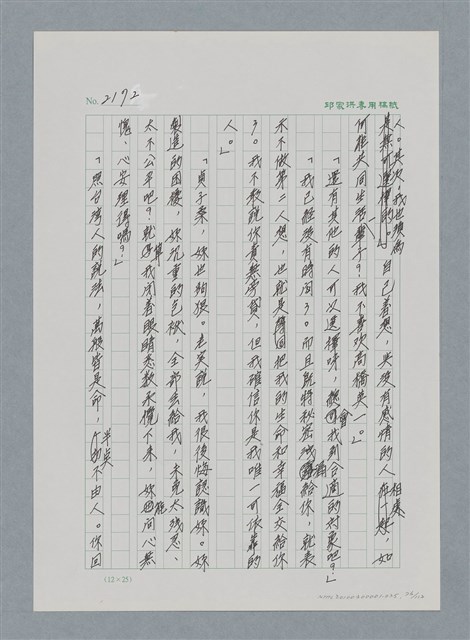 No. 2192
邱家洪專用稿紙
人。其次,我也須為自己着想,與沒有感情的人相處在一起,如
何能共同生活一輩子?我不喜歡高橋英一。」
「還有其他的人可以選擇呀,總會找到合適的對象吧?」
「我已經沒有時間了。而且既將秘密洩漏給你,就表
示不做第二人想,也就是隨同把我的生命和幸福全交給你
了。我不敢說你責無旁貸,但我確信你是我唯一可依靠的
人。」
「貞子桑,妳也夠狠。老實說,我很後悔認識妳。妳
製造的困擾,妳沉重的包袱,全部丟給我,未免太殘忍、
太不公平吧?就算我閉着眼睛悉數承攬下來,妳捫心無
愧、心安理得嗎?」
「照台灣人的說法,萬般皆是命,半點不由人。你回
(12×25)